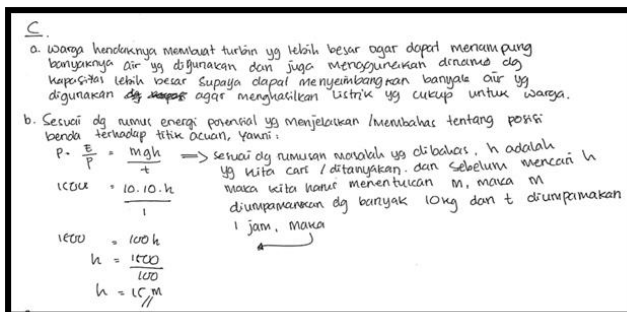 C.
a. warga hendaknya membuat turbin yg lebih besar agar dapat menampung
banyaknya air yg digunakan dan juga menggunakan dinamo dg
kapasitas lebih besar supaya dapat menyeimbangkan banyak air yg
digunakan agar menghasilkan listrik yg cukup untuk warga.
b. Sesuai dg rumus energi potensial yg menjelaskan / membahas tentang posisi
benda terhadap titik acuan, yakni :
P = E/P = mgh/t => sesuai dg rumusan masalah yg dibahas, h adalah
yg kita cari / ditanyakan. dan sebelum mencari h
1500 = 10.10.h/1 maka kita harus menentukan m, maka m
diumpamakan dg banyak 10kg dan t diumpamakan
1 jam, maka
1500 = 100h
h = 1500/100
h = 15 m